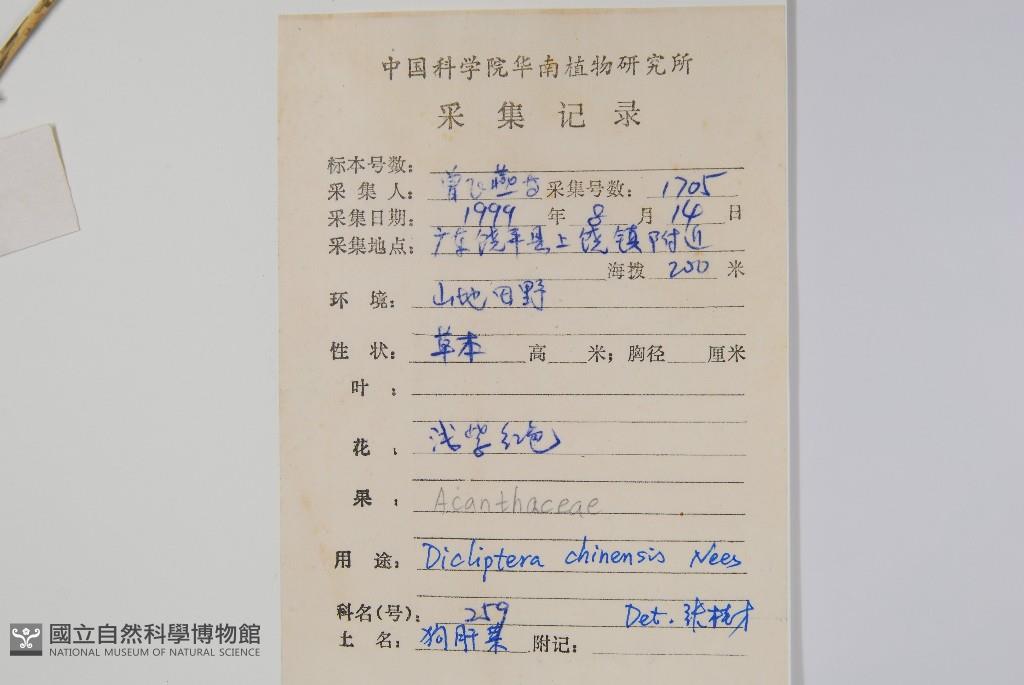 中国科学院华南植物研究所
采集记录
标本号数:
采集人: 曾飞燕 采集号数: 1705
采集日期: 1999 年 8 月 14 日
采集地点: 广东饶平县上饶镇附近
海拨 200 米
环境: 山地田野
性状: 草本 高 米; 胸径 厘米
叶:
花: 浅紫红色
果:
Acanthaceae
用途: Dicliptera chinensis Nees
科名(号): 259 Det. 张桂才
土名: 狗肝菜 附记:
國立自然科學博物館
NATIONAL MUSEUM OF NATURAL SCIENCE